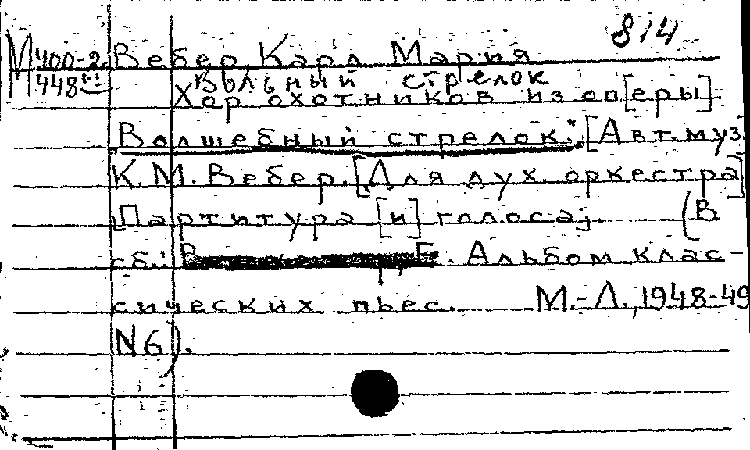 814
М400-2 Вебер, Карл Мария
448
Вольный стрелок
Хор охотников из оп[еры]
"Волшебный стрелок." [Авт. муз.
К. М. Вебер. [Для дух. оркестра]
Партитура [и] голоса]. (В
сб.: Альбом клас-
сических пьес. М.-Л., 1948-49
N6).